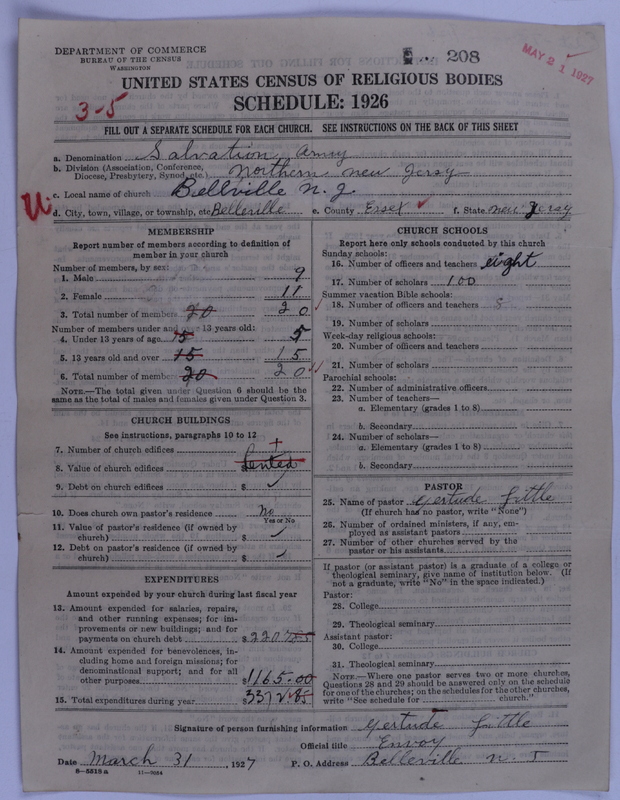 DEPARTMENT OF COMMERCE
BUREAU OF THE CENSUS
WASHINGTON
208
MAY 21 1927
UNITED STATES CENSUS OF RELIGIOUS BODIES
3-5
SCHEDULE: 1926
FILL OUT A SEPARATE SCHEDULE FOR EACH CHURCH. SEE INSTRUCTIONS ON THE BACK OF THIS SHEET
a. Denomination Salvation Army
b. Division (Association, Conference, Diocese, Presbytery, Synod, etc.) Northern New Jersy
c. Local name of church Bellville N. J.
U.
d. City, town, village, or township, etc Belleville e. County Essex f. State New Jersy
MEMBERSHIP
Report number of members according to definition of
member in your church
Number of members, by sex:
1. Male 9
2. Female 11
3. Total number of members 20 20
Number of members under and over 13 years old:
4. Under 13 years of age 15 5
5. 13 years old and over 15 15
6. Total number of members 20 20
NOTE.—The total given under Question 6 should be the
same as the total of males and females given under Question 3.
CHURCH BUILDINGS
See instructions, paragraphs 10 to 12
7. Number of church edifices
8. Value of church edifices $ Rented
9. Debt on church edifices $
10. Does church own pastor's residence No
Yes or No
11. Value of pastor's residence (if owned by
church) $
12. Debt on pastor's residence (if owned by
church) $
EXPENDITURES
Amount expended by your church during last fiscal year
13. Amount expended for salaries, repairs,
and other running expenses; for im-
provements or new buildings; and for
payments on church debt $ 2207.85
14. Amount expended for benevolences, in-
cluding home and foreign missions; for
denominational support; and for all
other purposes $ 1165.00
15. Total expenditures during year $ 3372.85
CHURCH SCHOOLS
Report here only schools conducted by this church
Sunday schools:
16. Number of officers and teachers eight
17. Number of scholars 100
Summer vacation Bible schools:
18. Number of officers and teachers
19. Number of scholars
Week-day religious schools:
20. Number of officers and teachers
21. Number of scholars
Parochial schools:
22. Number of administrative officers
23. Number of teachers—
a. Elementary (grades 1 to 8)
b. Secondary
24. Number of scholars—
a. Elementary (grades 1 to 8)
b. Secondary
PASTOR
25. Name of pastor Gertude Little
(If church has no pastor, write "None")
26. Number of ordained ministers, if any, em-
ployed as assistant pastors
27. Number of other churches served by the
pastor or his assistants
If pastor (or assistant pastor) is a graduate of a college or
theological seminary, give name of institution below. (If
not a graduate, write "No" in the space indicated.)
Pastor:
28. College
29. Theological seminary
Assistant pastor:
30. College
31. Theological seminary
NOTE.—Where one pastor serves two or more churches,
Questions 28 and 29 should be answered only on the schedule
for one of the churches; on the schedules for the other churches,
write "See schedule for church."
Signature of person furnishing information Gertude Little
Official title Envoy
Date March 31, 1927 P. O. Address Belleville N. J
8-5518a 11-9084